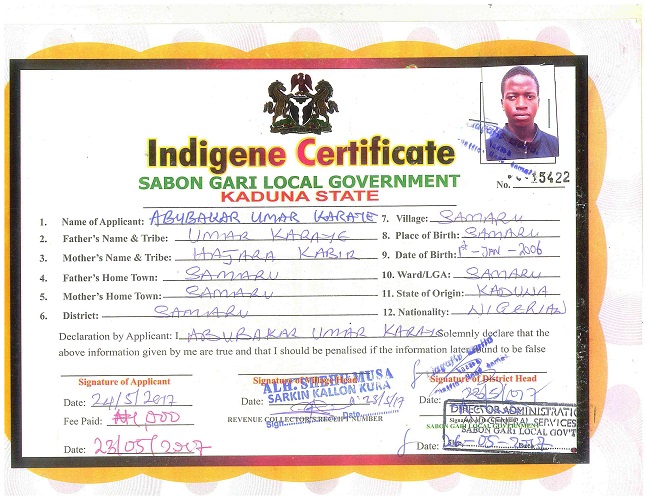 Indigene Certificate
SABON GARI LOCAL GOVERNMENT
KADUNA STATE
No. 15422
1. Name of Applicant: ABUBAKAR UMAR KARAYE
7. Village: SAMARU
2 Father's Name & Tribe: UMAR KARAYE
8. Place of Birth: SAMARU
3 Mother's Name & Tribe: HAJARA KABIR
9. Date of Birth: 1st - JAN - 2006
4 Father's Home Town: SAMARU
10. Ward/LGA: SAMARU
5 Mother's Home Town: SAMARU
11. State of Origin: KADUNA
6. District: SAMARU
12. Nationality: NIGERIAN
Declaration by Applicant: I ABUBAKAR UMAR KARAYE Solemnly declare that the
above information given by me are true and that I should be penalised if the information later found to be false
Signature of Applicant
Signature of Village Head
Signature of District Head
ALH. MUSA
SARKIN KALLON KUKA
Sign Date
Date: 24/5/2017
Date: 23/5/17
Date:
Fee Paid: ₦1,000
REVENUE COLLECTOR'S RECEIPT NUMBER
DIRECTOR ADMINISTRATION
(GENERAL) SERVICES
SABON GARI LOCAL GOV'T
SABON GARI LOCAL GOVERNMENT
Date: 23/05/2017
Date: 26-05-2017